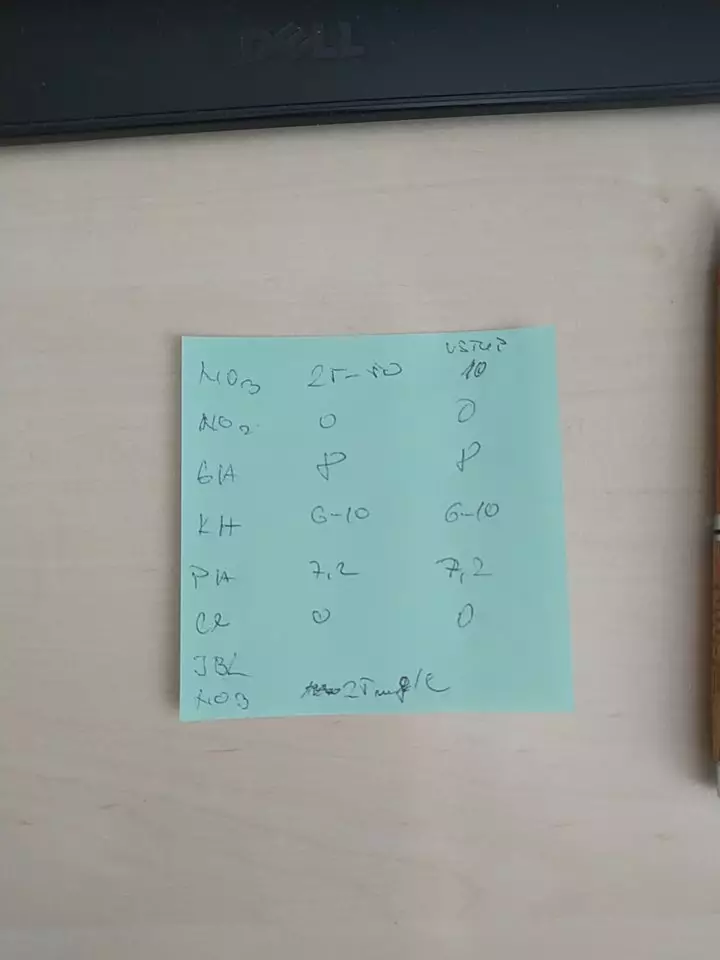 DELL
VSTUP
NO3 25-50 10
NO2 0 0
GH 8 8
KH 6-10 6-10
PH 7,2 7,2
Cl 0 0
JBL
NO3 25mg/l